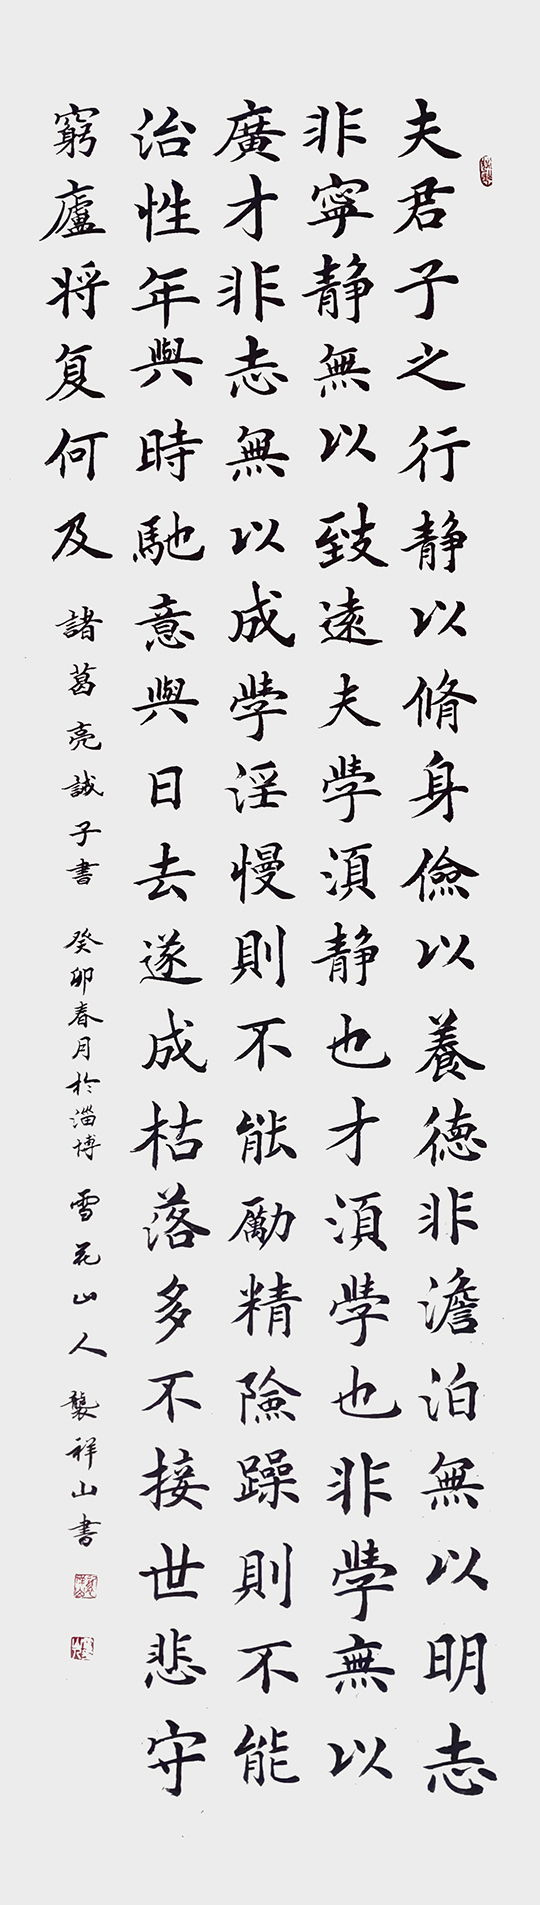 夫君子之行静以脩身儉以養德非澹泊無以明志
非寧静無以致遠夫學須静也才須學也非學無以
廣才非志無以成學淫慢則不能勵精險躁則不能
治性年與時馳意與日去遂成枯落多不接世悲守
窮廬将复何及 諸葛亮誡子書 癸卯春月於淄博 雪花山人 龑祥山書